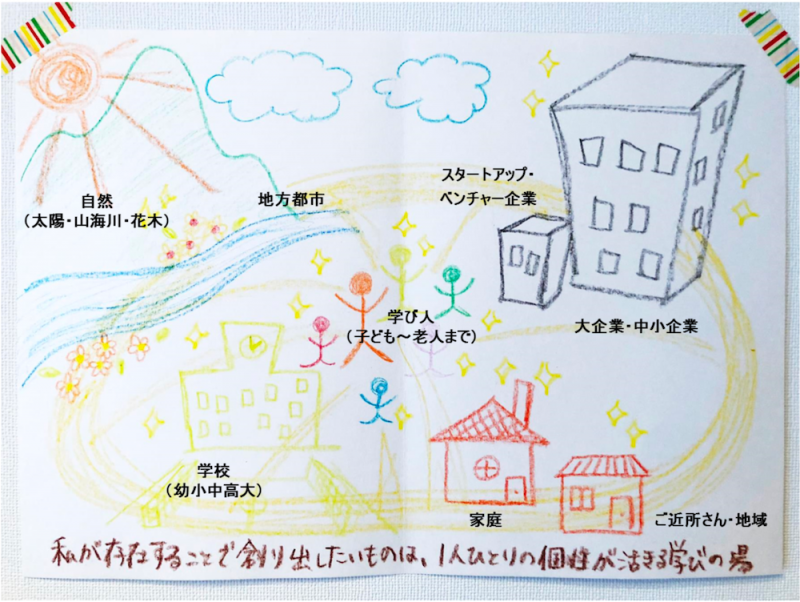 自然
（太陽・山海川・花木）
地方都市
スタートアップ・
ベンチャー企業
学び人
（子ども～老人まで）
大企業・中小企業
学校
（幼小中高大）
家庭
ご近所さん・地域
私が存在することで創り出したいものは、1人ひとりの個性が活きる学びの場